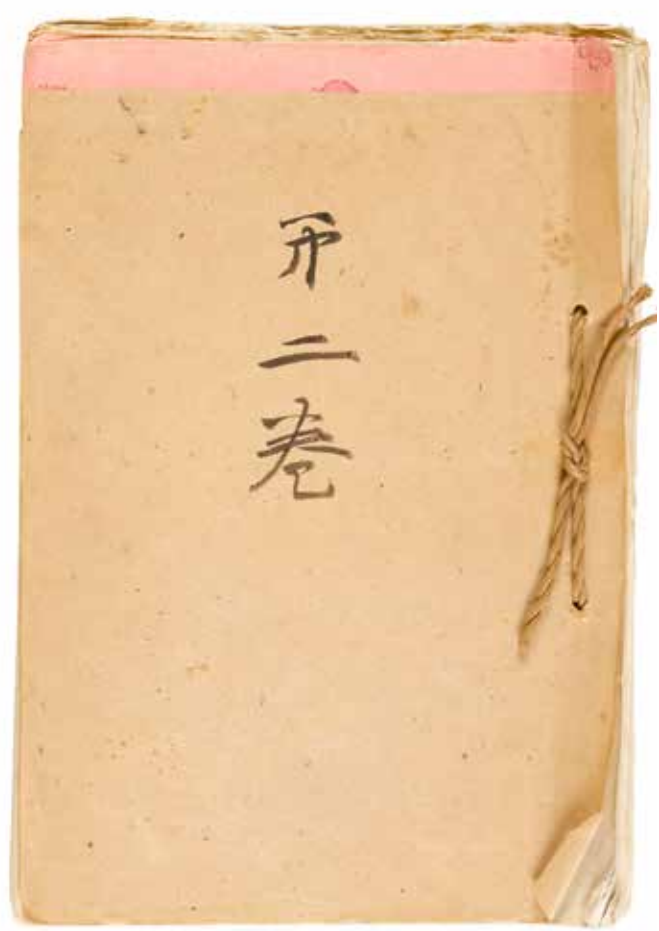 㐧二巻